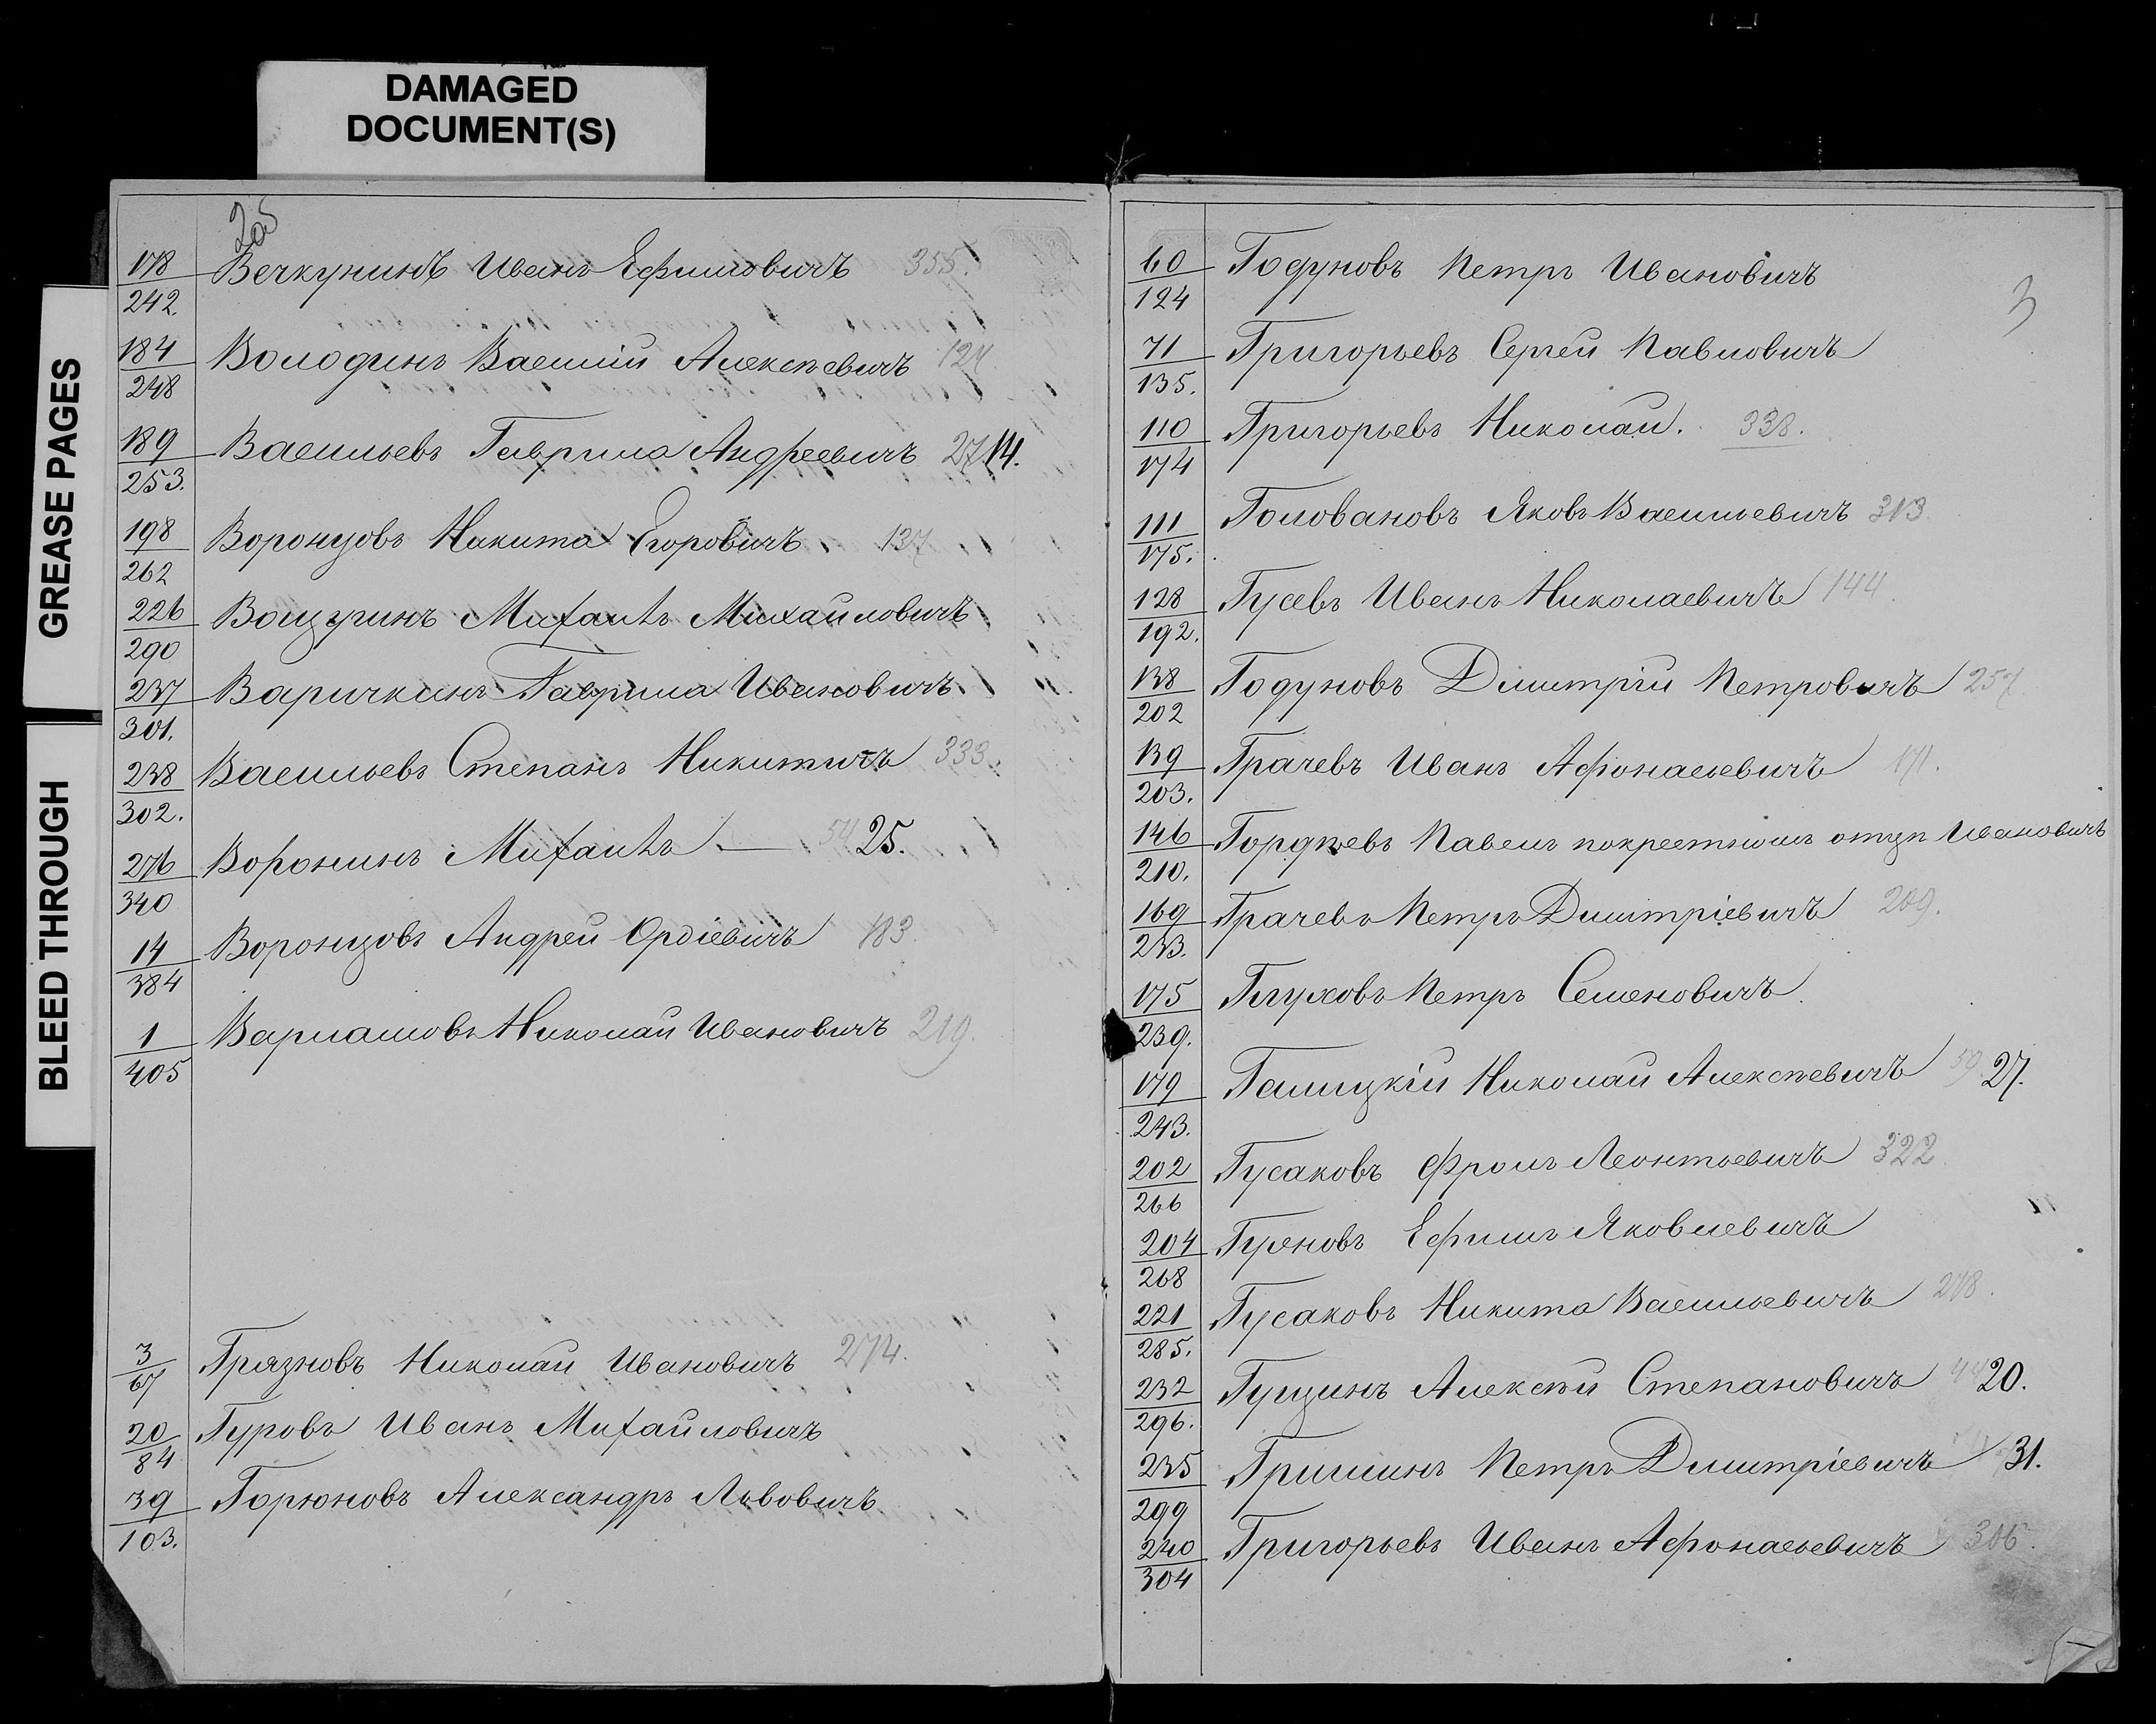 DAMAGED
DOCUMENT(S)
GREASE PAGES
BLEED THROUGH
178/242. Вечкунинъ Иванъ Ефимовичъ 355.
184/248 Володинъ Василій Алексѣевичъ 124
189/253. Васильевъ Гаврила Андреевичъ 27 14.
198/262 Воронцовъ Никита Егоровичъ 137
226/290 Вощуринъ Михаилъ Михайловичъ
237/301. Варичкинъ Гаврила Ивановичъ
238/302. Васильевъ Степанъ Никитичъ 333.
276/340 Воронинъ Михаилъ — 54 25.
14/384 Воронцовъ Андрей Ордіевичъ 183.
1/405 Варламовъ Николай Ивановичъ 219.
3/67 Грязновъ Николай Ивановичъ 274.
20/84 Гуровъ Иванъ Михайловичъ
39/103. Горюновъ Александръ Львовичъ
3
60/124 Годуновъ Петръ Ивановичъ
71/135. Григорьевъ Сергей Павловичъ
110/174 Григорьевъ Николай. 338.
111/175. Головановъ Яковъ Васильевичъ 313
128/192. Гусевъ Иванъ Николаевичъ 144.
138/202 Годуновъ Димитрій Петровичъ 257
139/203. Грачевъ Иванъ Афонасьевичъ 171.
146/210. Гордѣевъ Павелъ покрестному отцу Ивановичъ
169/233. Грачевъ Петръ Димитріевичъ 209.
175/239. Глуховъ Петръ Семеновичъ
179/243. Галицкій Николай Алексѣевичъ 59 27.
202/266 Гусаковъ Фролъ Леонтьевичъ 322
204/268 Ефимъ Яковлевичъ
221/285. Гусаковъ Никита Васильевичъ 278.
232/296. Гущинъ Алексѣй Степановичъ 20.
235/299 Гришинъ Петръ Димитріевичъ 31.
240/304 Григорьевъ Иванъ Афонасьевичъ 306.